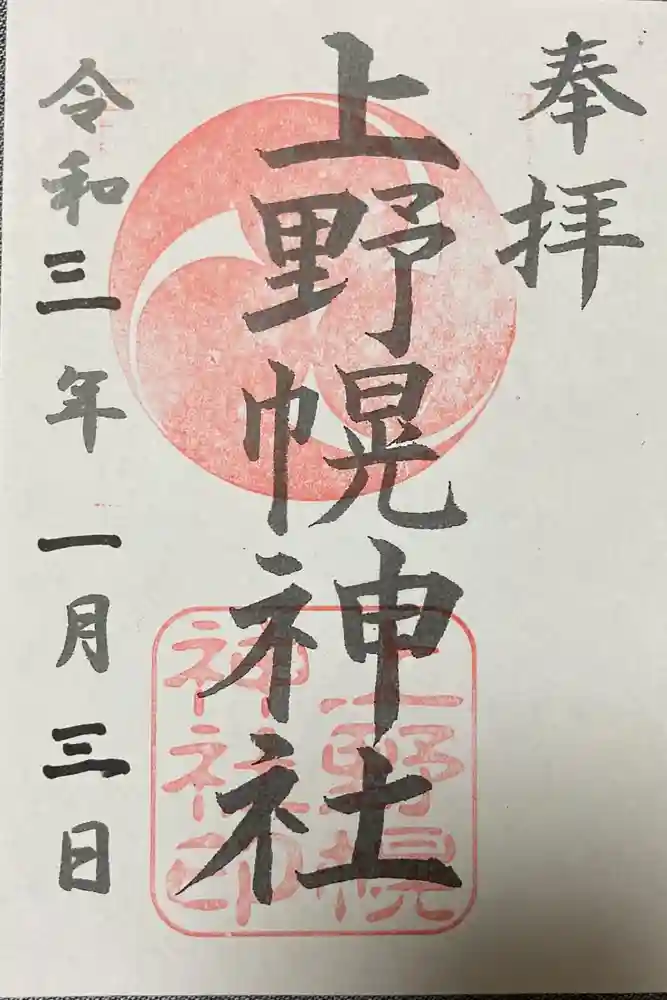 奉拝
上野幌神社
令和三年一月三日
上野幌
神社印